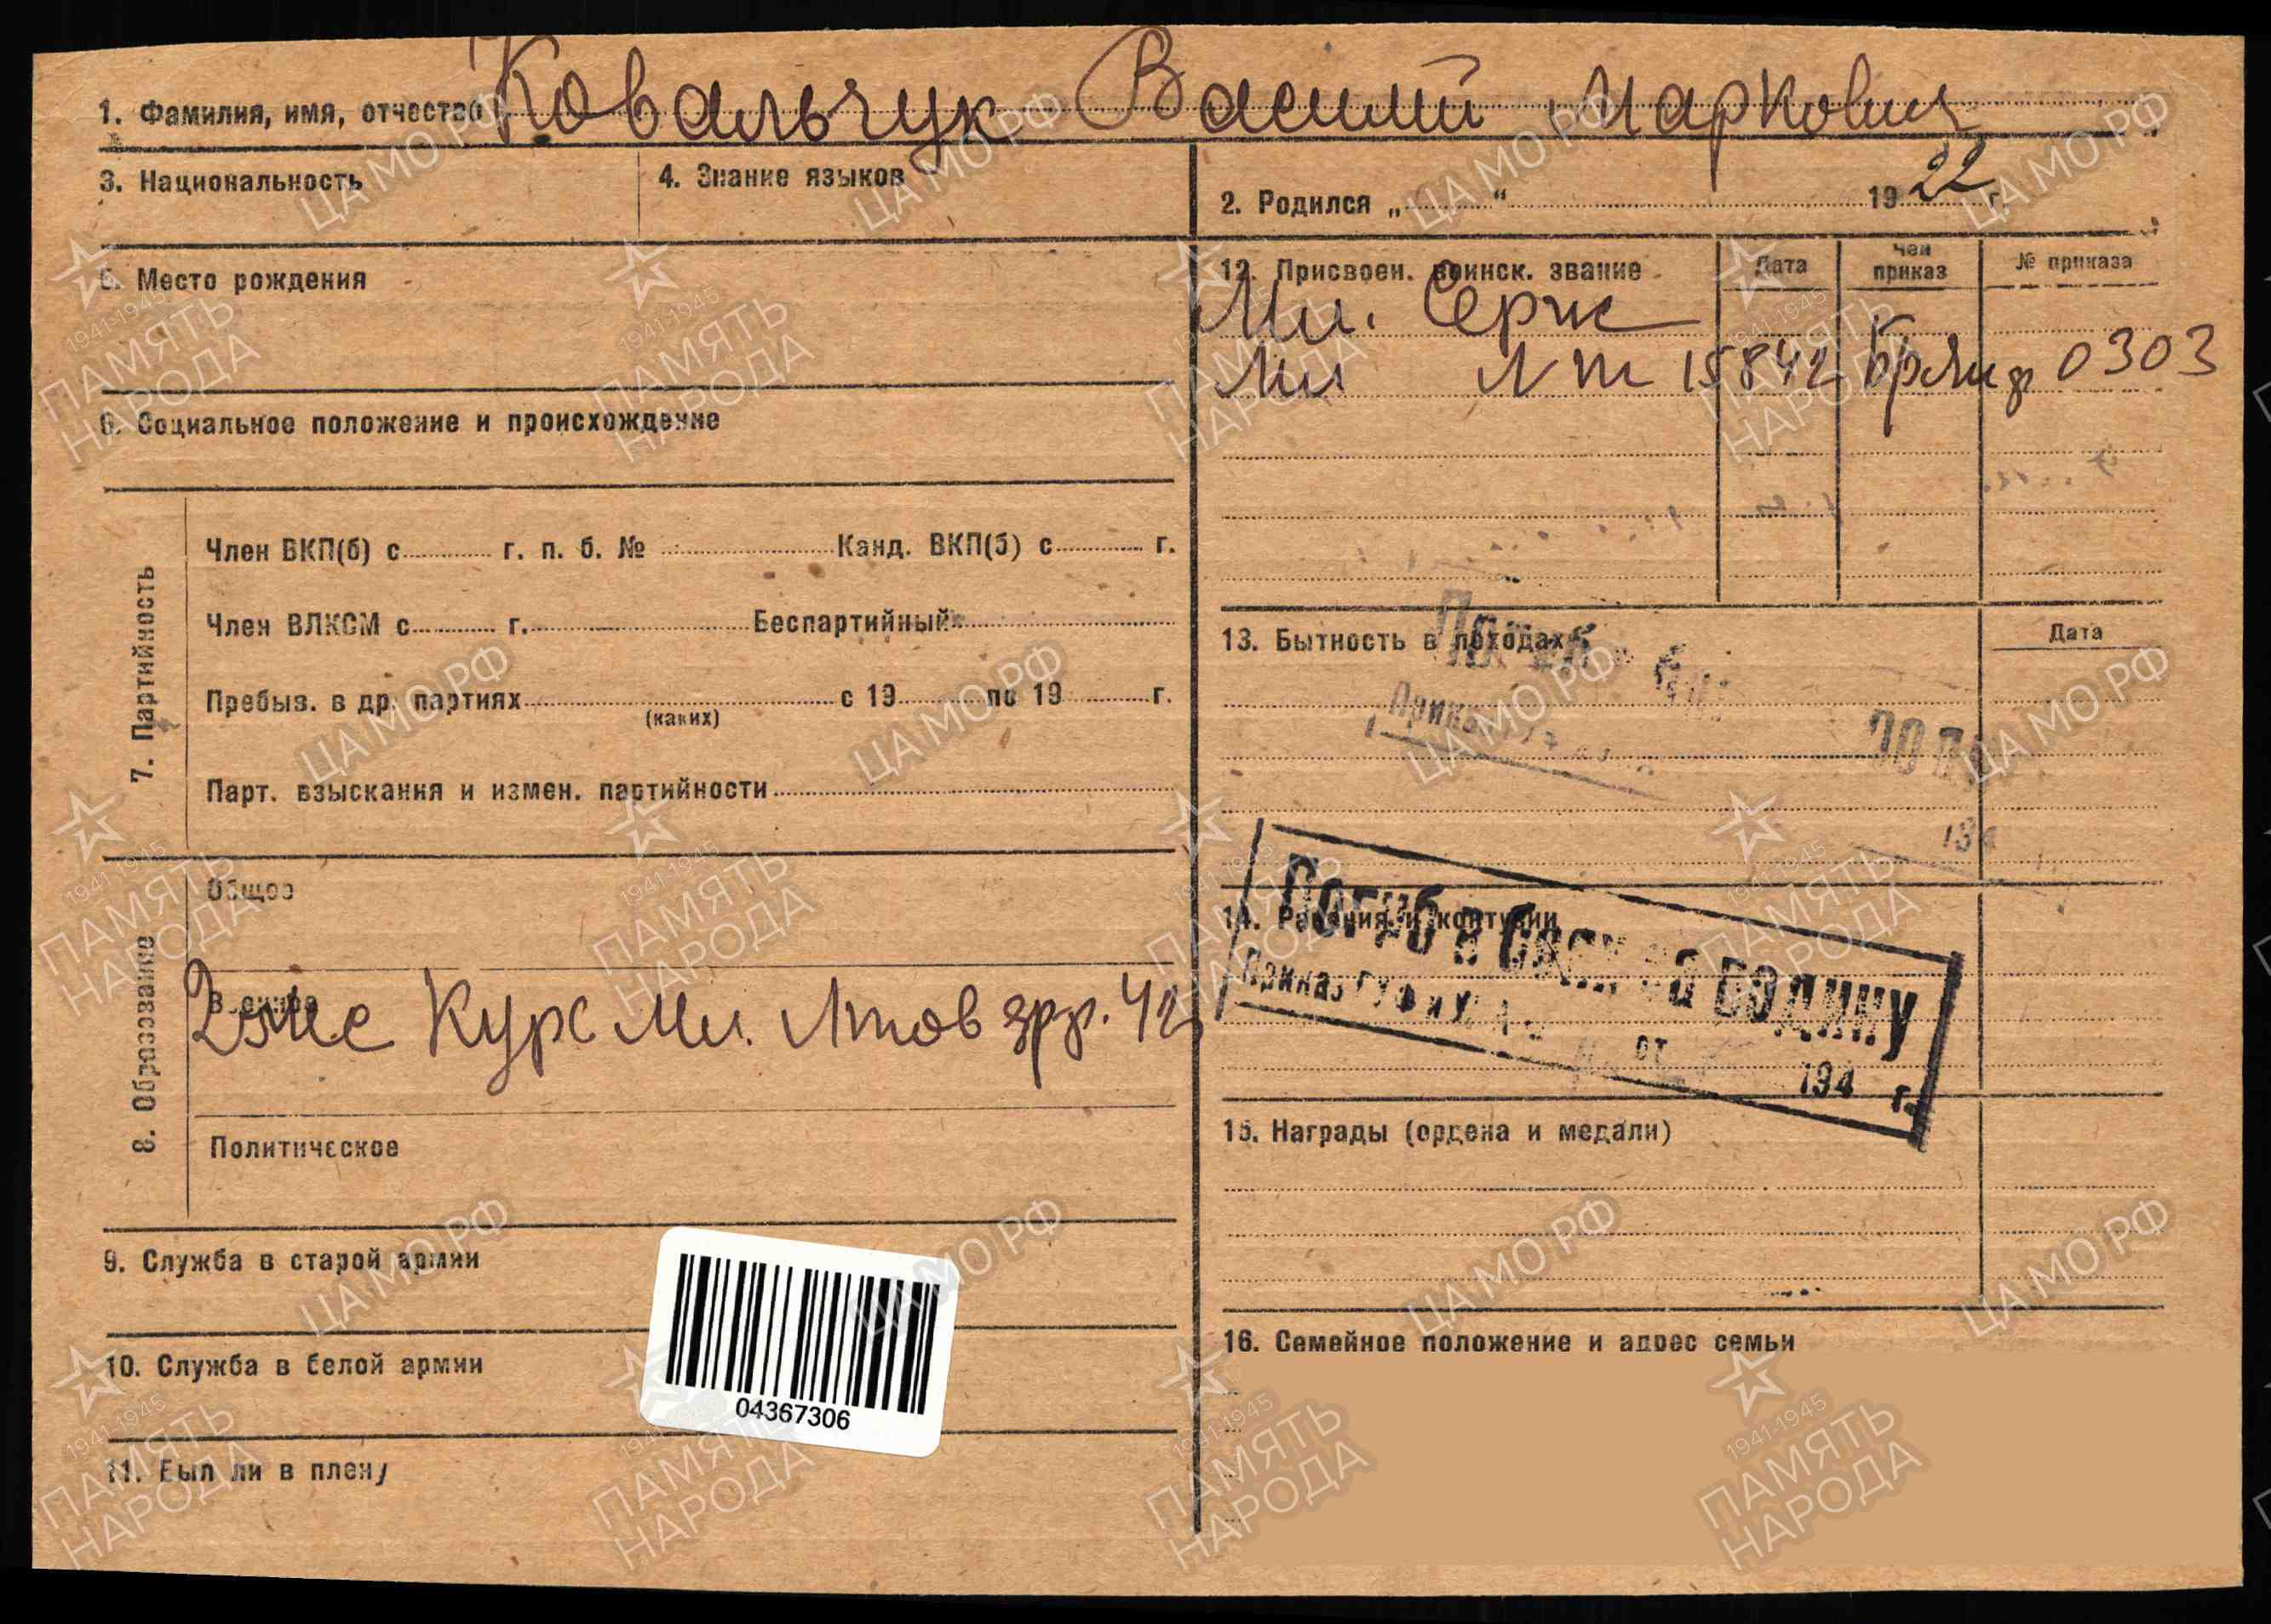 1. Фамилия, имя, отчество Ковальчук Василий Маркович
3. Национальность
4. Знание языков
2. Родился „ “ 1922 г.
5. Место рождения
6. Социальное положение и происхождение
7. Партийность
Член ВКП(б) с г. п. б. № Канд. ВКП(б) с г.
Член ВЛКСМ с г. Беспартийный
Пребыв. в др. партиях с 19 по 19 г.
(каких)
Парт. взыскания и измен. партийности
8. Образование
Общее
Военное
Курс Мл. Лтов 42
Политическое
9. Служба в старой армии
10. Служба в белой армии
11. Был ли в плену
04367306
12. Присвоен. воинск. звание Дата Чей приказ № приказа
Мл. Серж
Мл Лт 15842 0303
13. Бытность в походах Дата
14. Ранения и контузии
Погиб в боях за родину
Приказ ГУФ и У от 194 г.
15. Награды (ордена и медали)
16. Семейное положение и адрес семьи
ЦА МО РФ
1941-1945
ПАМЯТЬ
НАРОДА